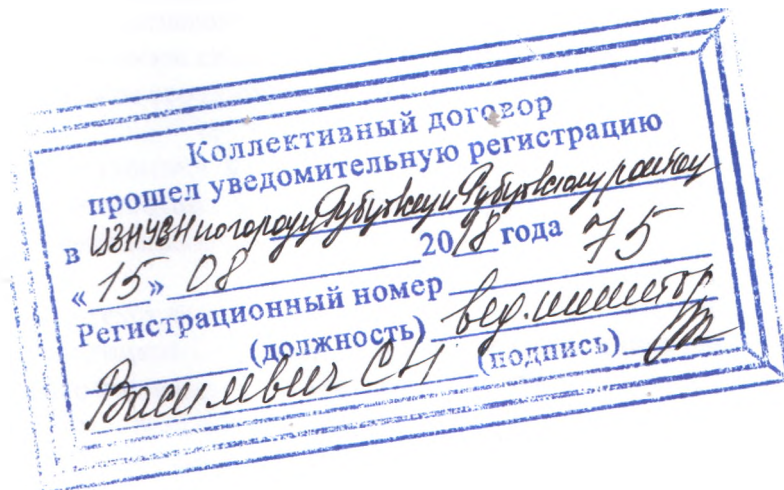 Коллективный договор
прошел уведомительную регистрацию
в ЦЗН УСЗН по городу Рубцовску и Рубцовскому району
«15» 08 2018 года
Регистрационный номер 75
(должность) вед. инспектор
Василевич С Н (подпись)